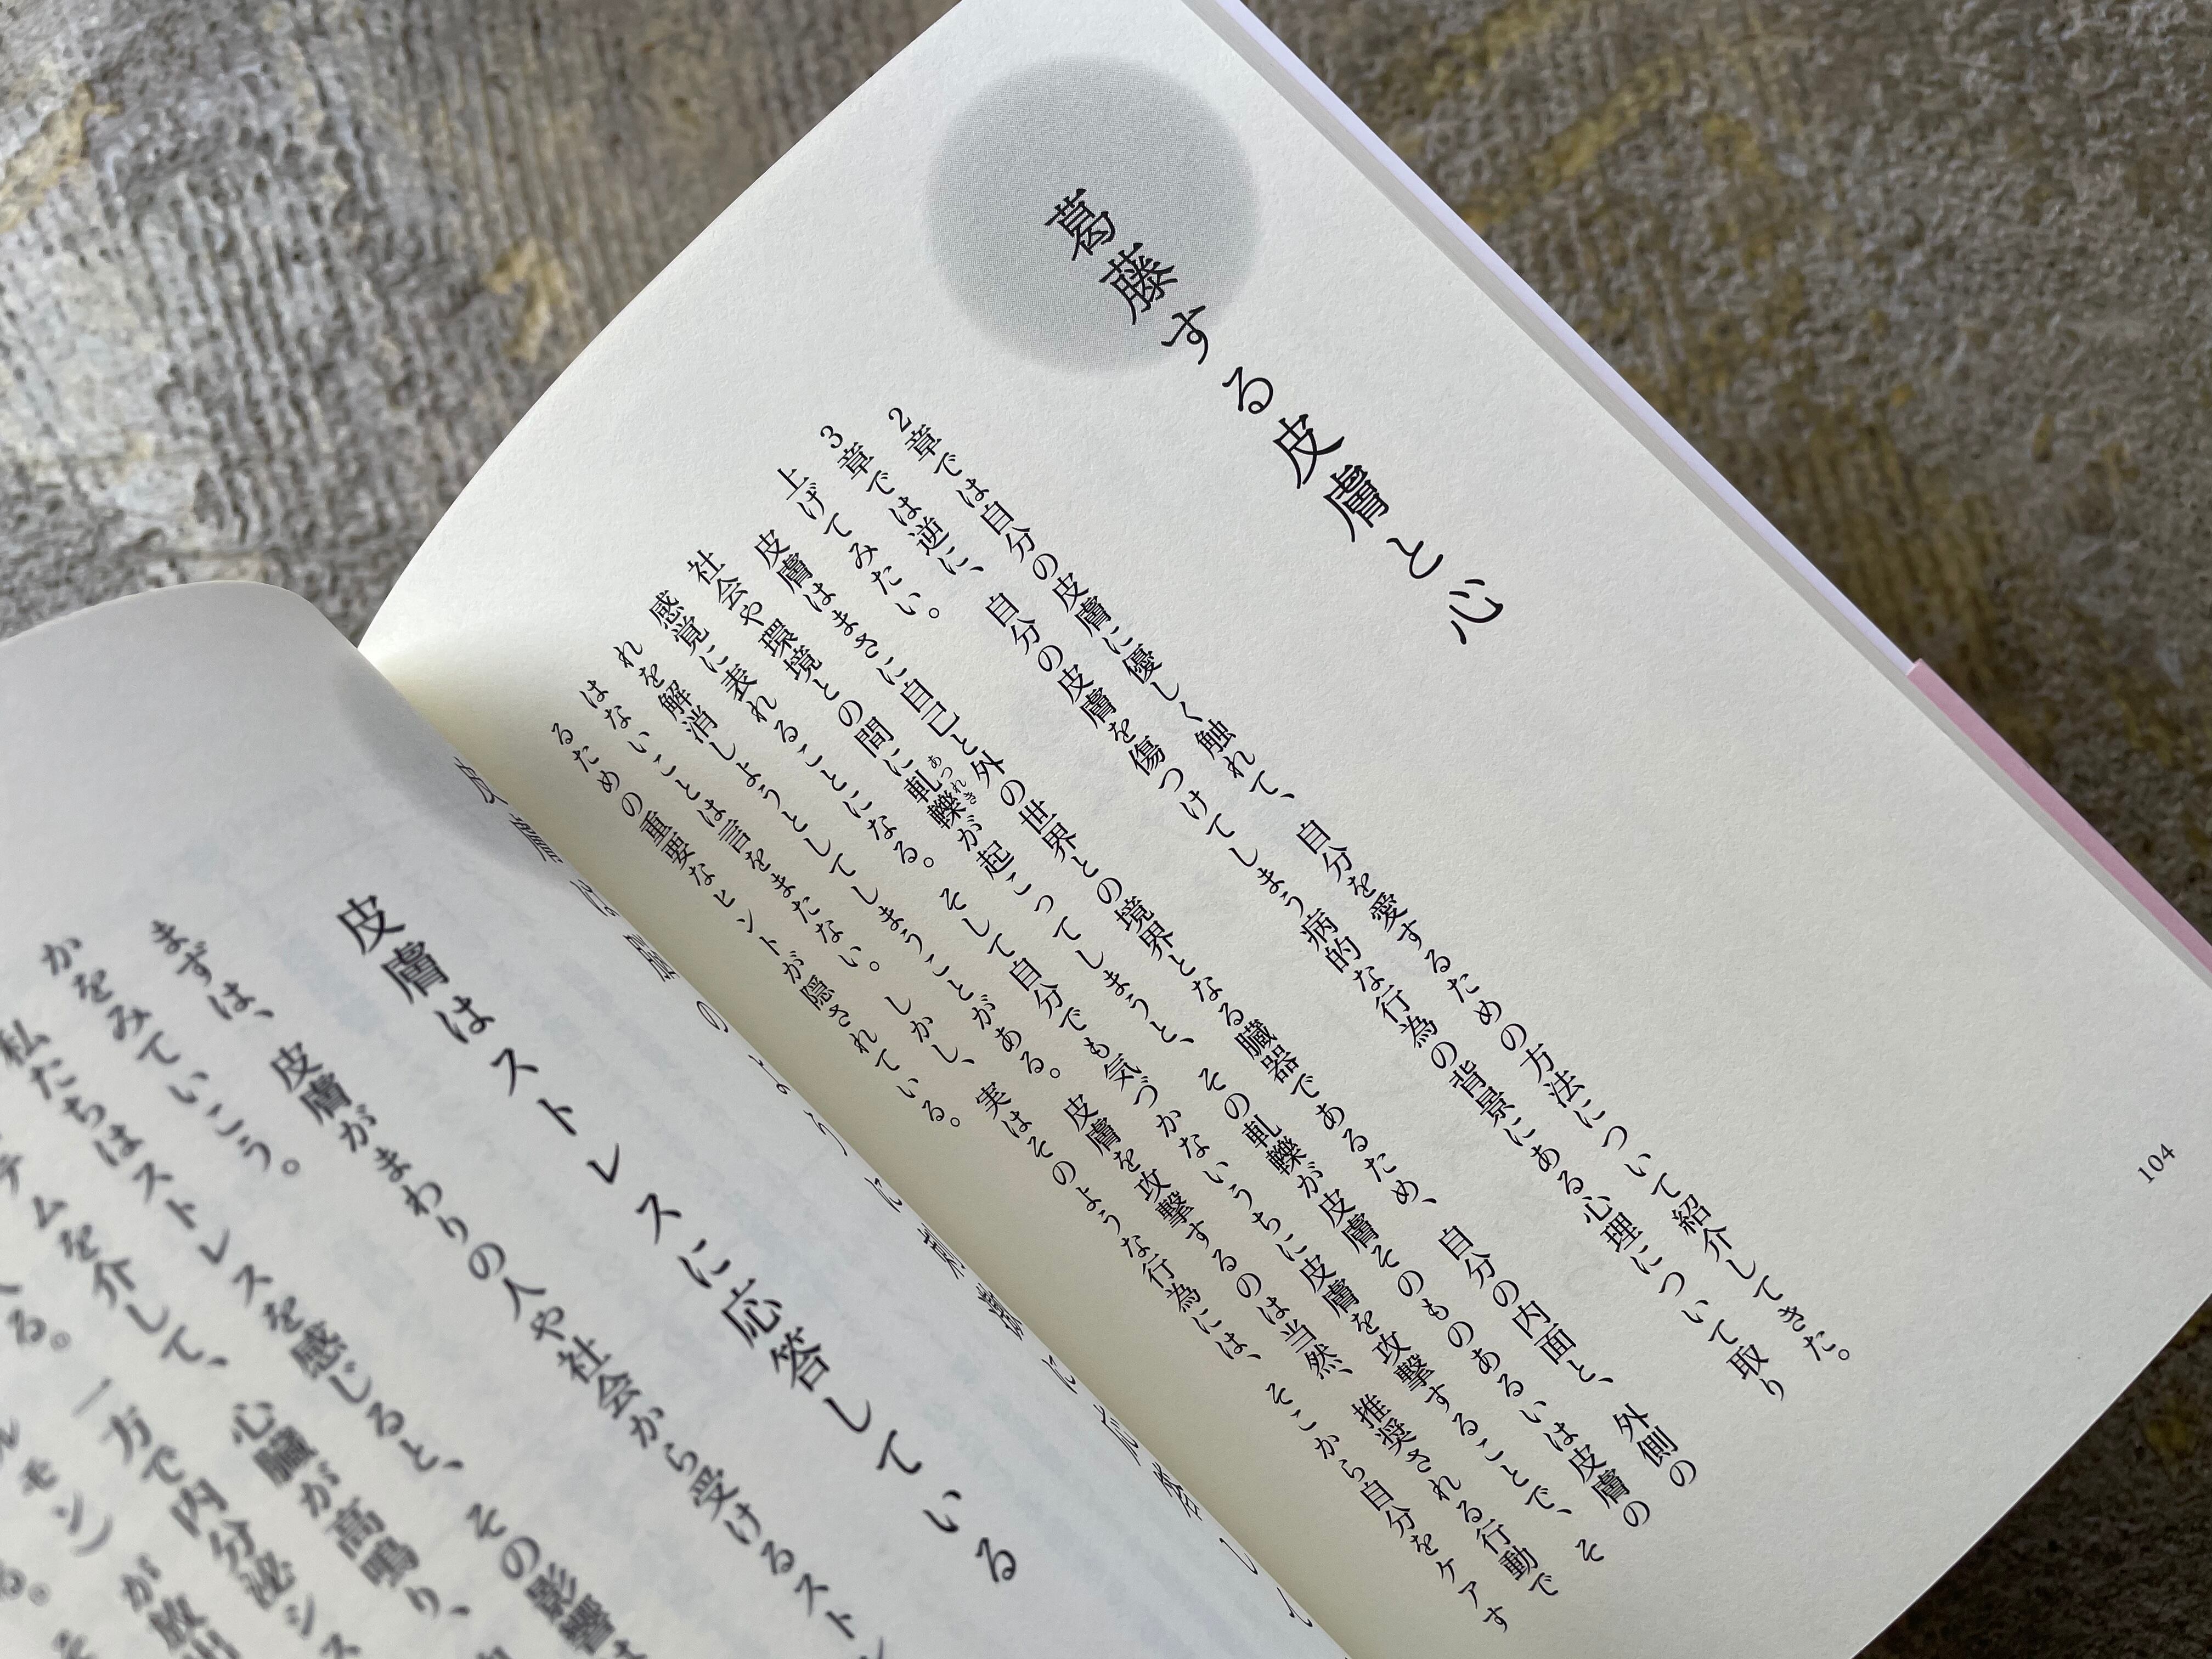 葛藤する皮膚と心
2章では自分の皮膚に優しく触れて、自分を愛するための方法について紹介してきた。
3章では逆に、自分の皮膚を傷つけてしまう病的な行為の背景にある心理について取り
上げてみたい。
皮膚はまさに自己と外の世界との境界となる臓器であるため、自分の内面と、外側の
あつれき
社会や環境との間に軋轢が起こってしまうと、その軋轢が皮膚そのものあるいは皮膚の
感覚に表れることになる。そして自分でも気づかないうちに皮膚を攻撃することで、そ
れを解消しようとしてしまうことがある。皮膚を攻撃するのは当然、推奨される行動で
はないことは言をまたない。しかし、実はそのような行為には、そこから自分をケアす
るための重要なヒントが隠されている。
104
皮膚はストレスに応答している
まずは、皮膚がまわりの人や社会から受けるスト
かをみていこう。
私たちはストレスを感じると、その影響は
テムを介して、心臓が高鳴り、
る。一方で内分泌シス
ルモン）が放出
る。そ